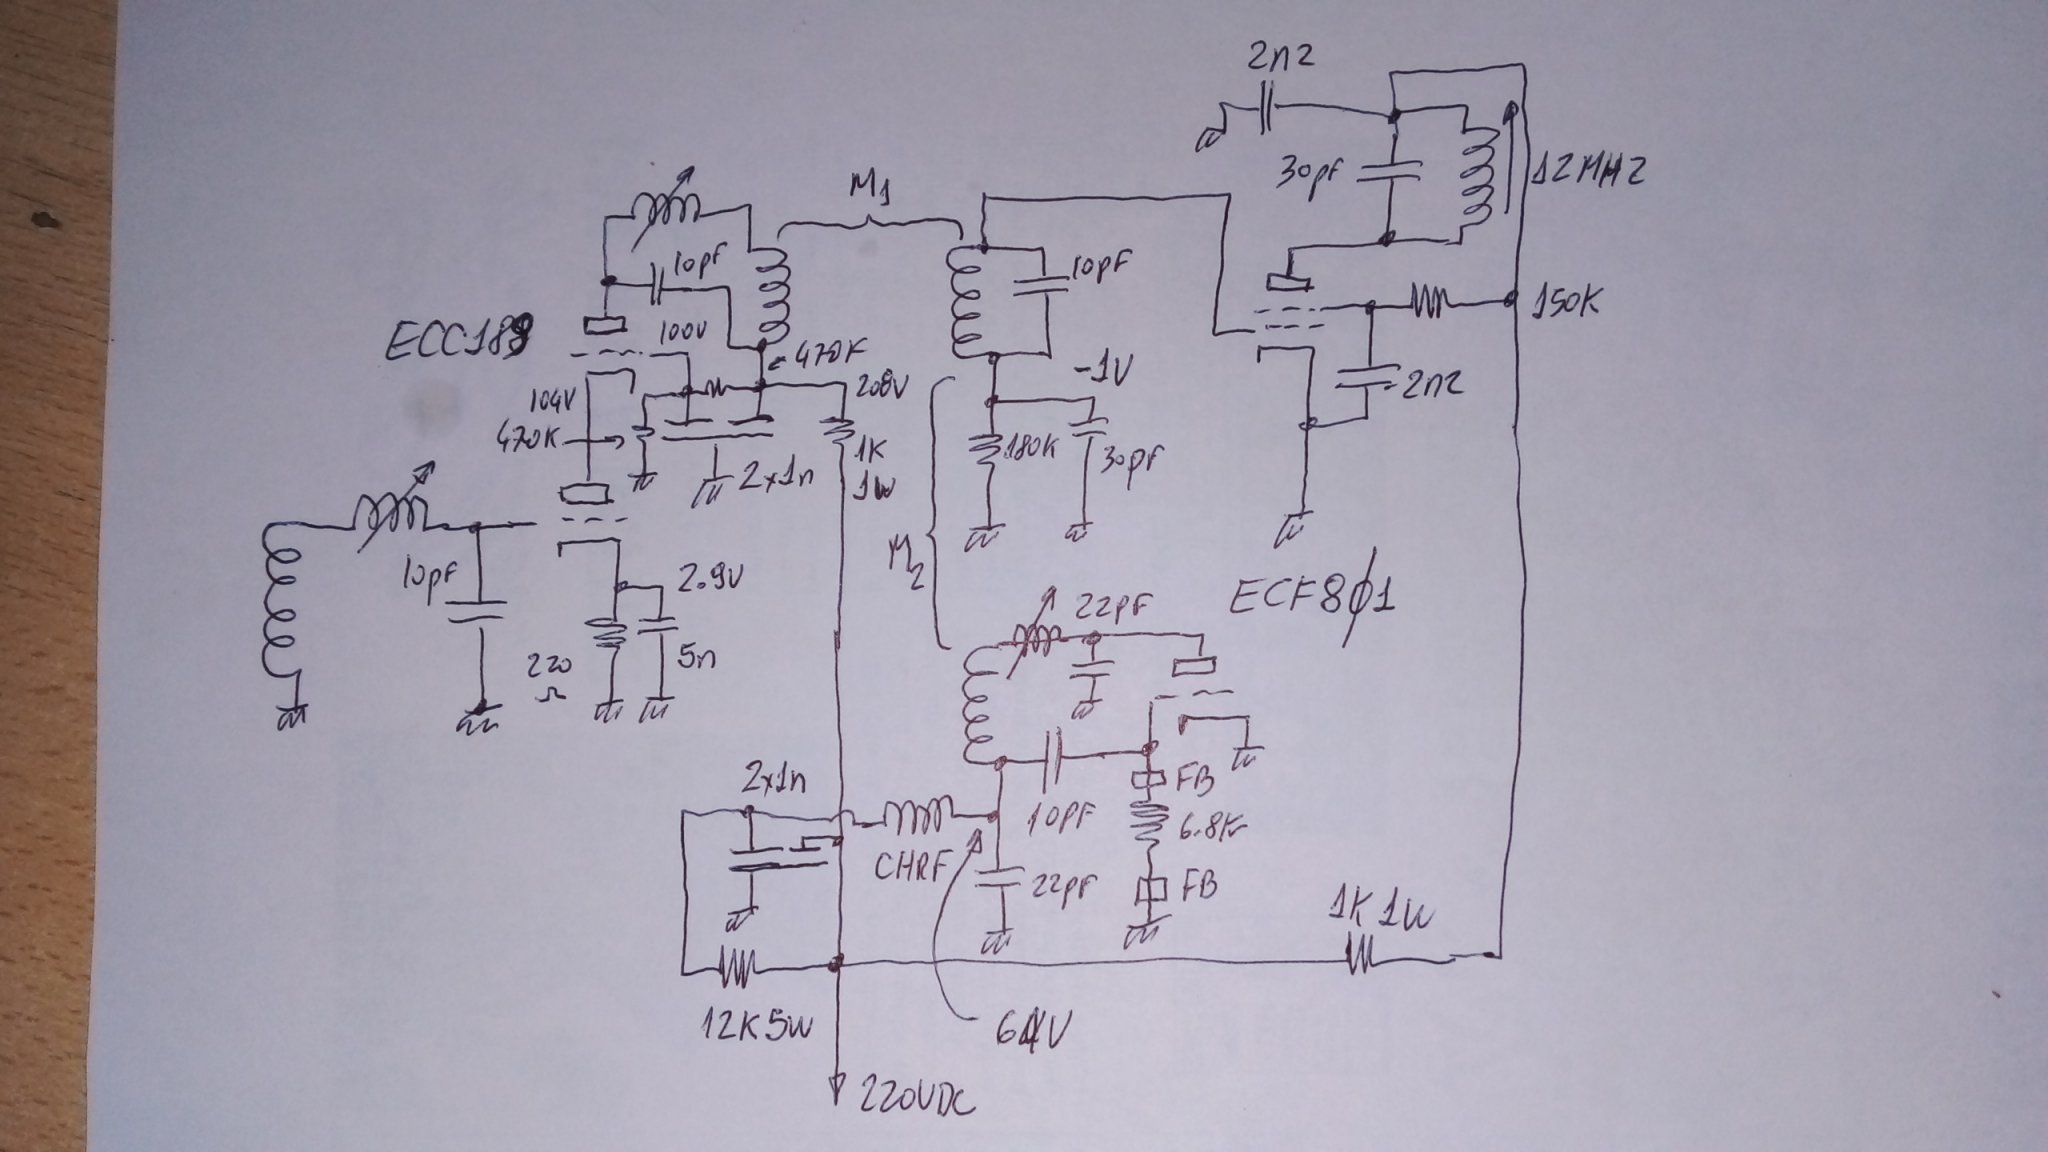 2n2
30pF
12MHZ
M1
10pF
10pF
ECC189
100V
470K
208V
-1V
150K
2n2
104V
470K
2x1n
1K
1W
180K
30pF
M2
10pF
2.9V
220
Ω
5n
22pF
ECF801
2x1n
CHRF
10pF
FB
6.8K
22pF
FB
1K 1W
12K5W
64V
220VDC